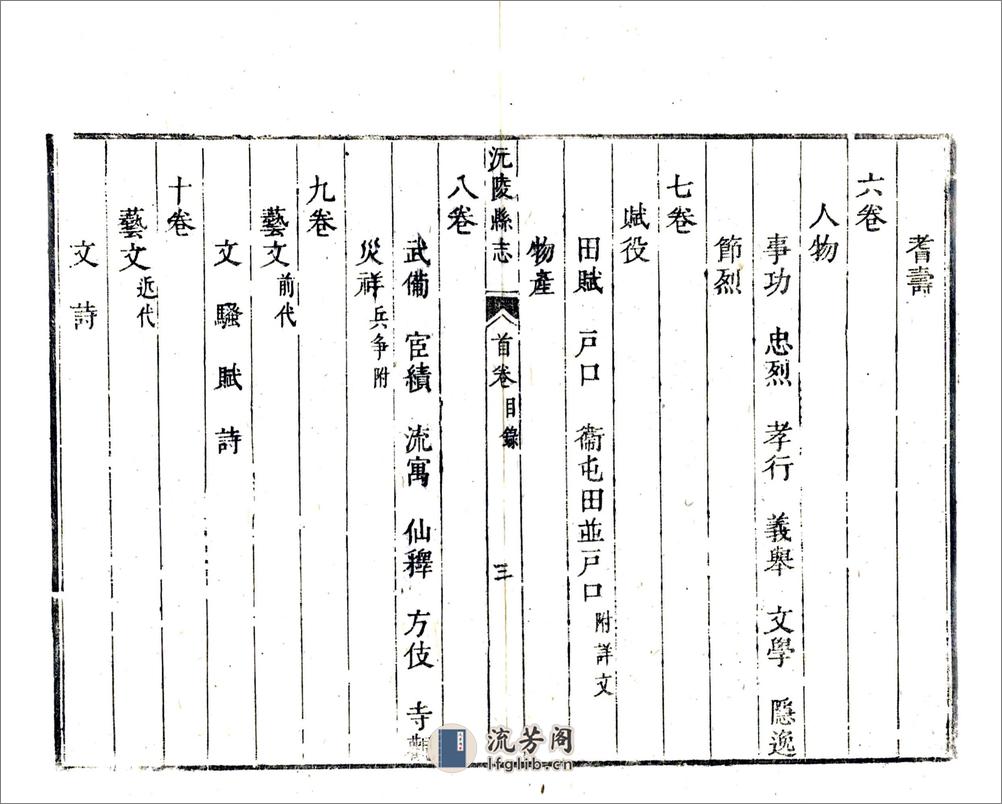 耆壽
六卷
人物
事功 忠烈 孝行 義舉 文學 隱逸
節烈
七卷
賦役
田賦 戸口 衞屯田並戸口 附詳文
物產
沅陵縣志 首卷 目錄 三
八卷
武備 宦績 流寓 仙釋 方伎 寺觀
災祥 兵争附
九卷
藝文 前代
文 騷 賦 詩
十卷
藝文 近代
文 詩
流芳阁
lfglib.cn